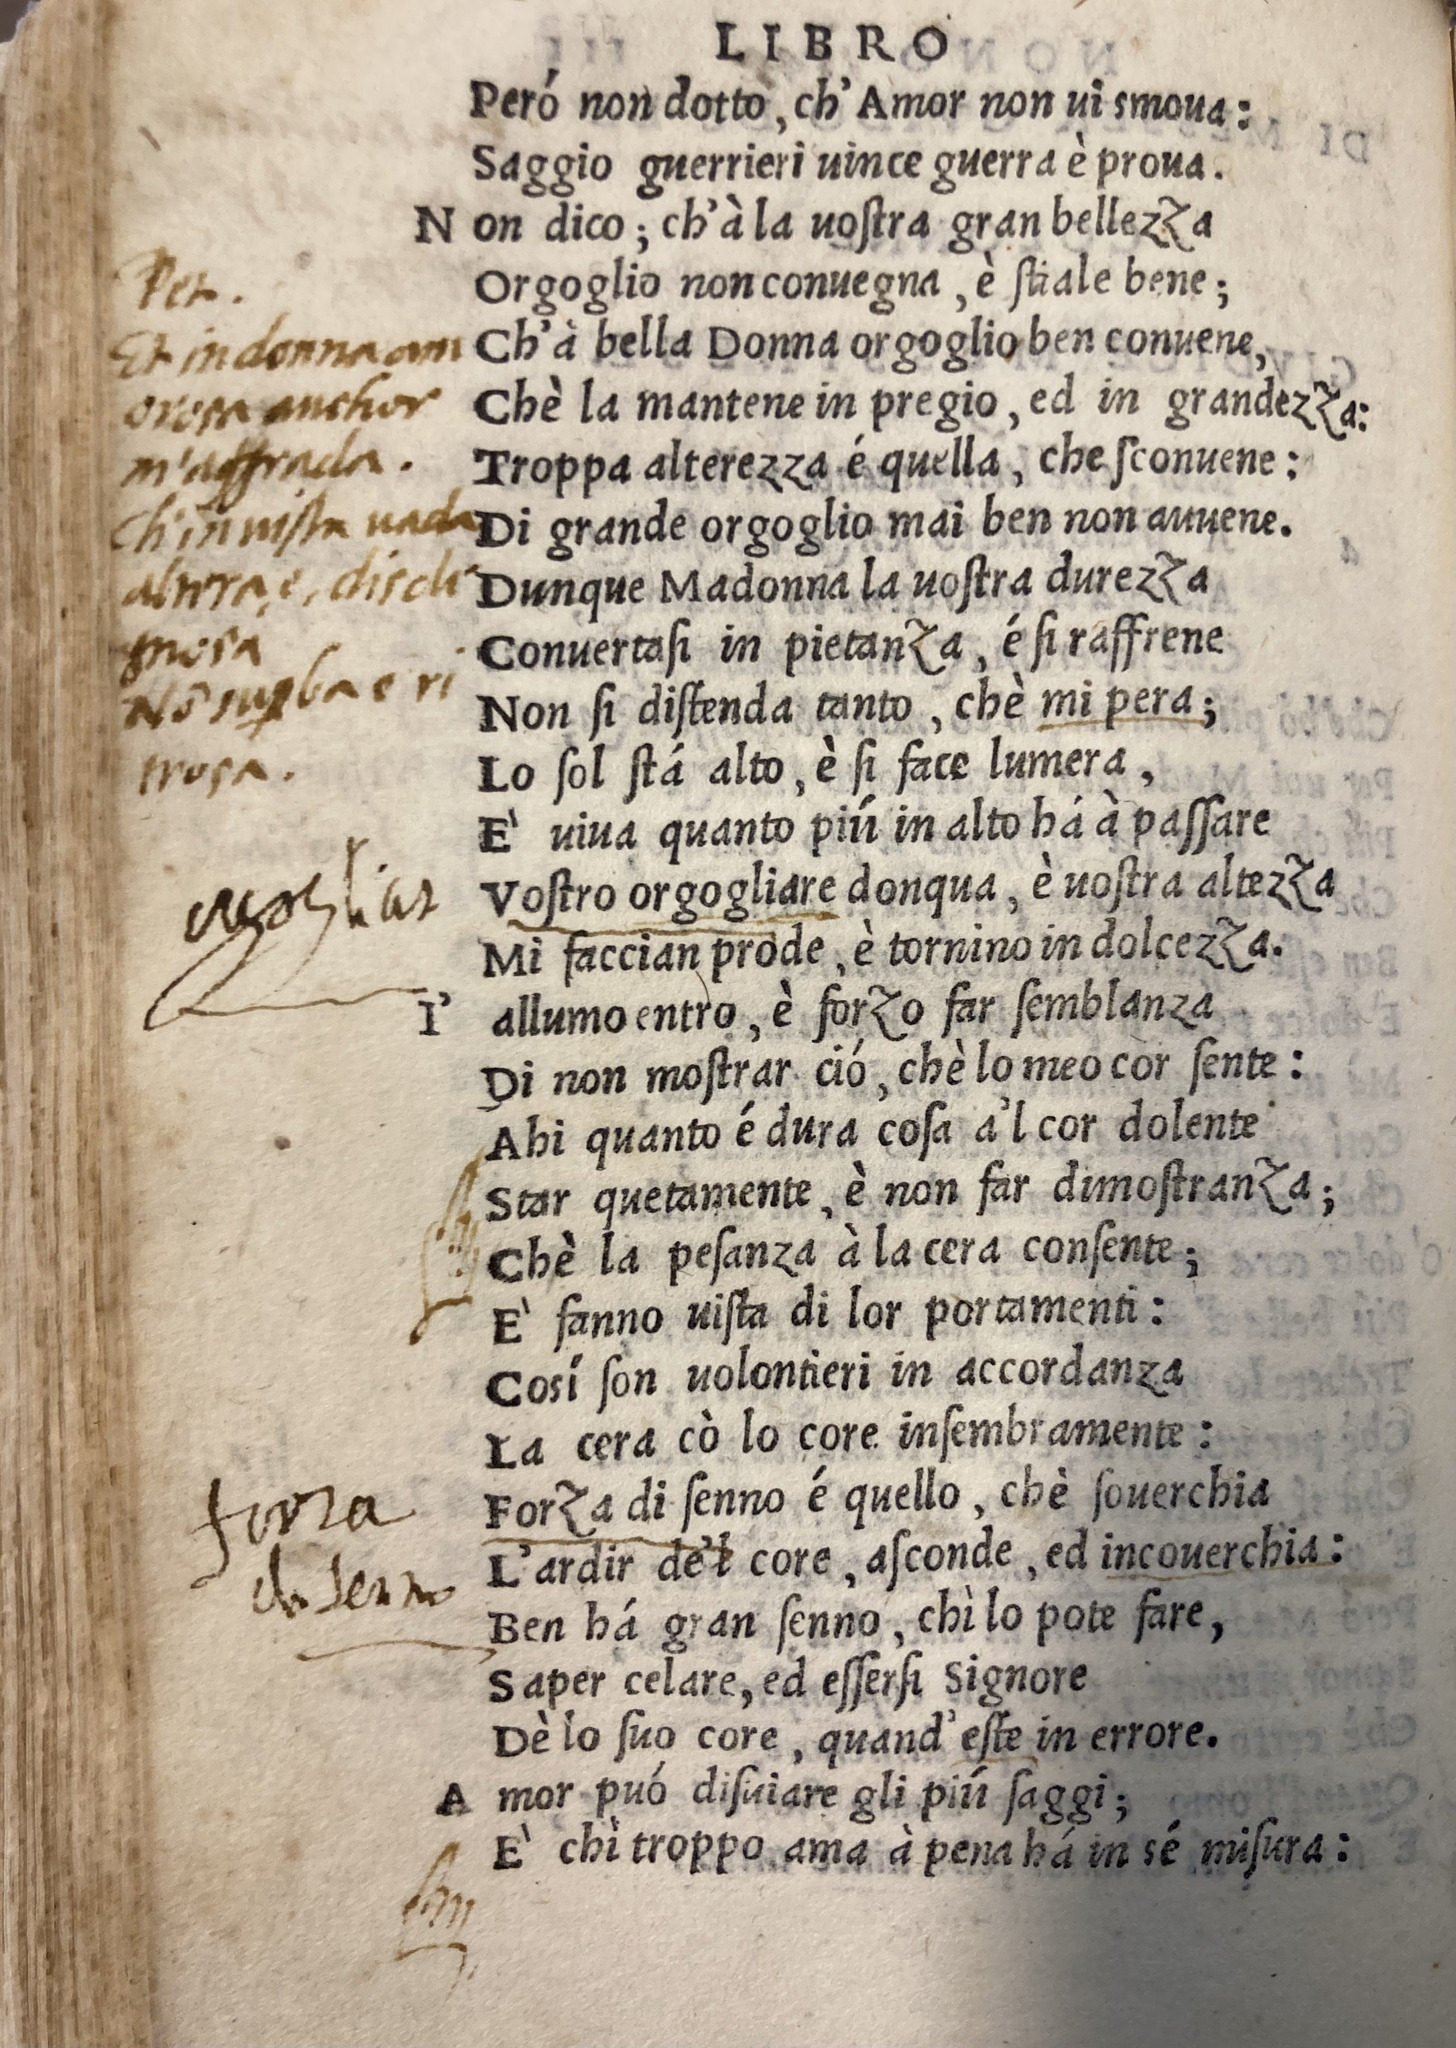 LIBRO
Peró non dotto, ch'Amor non ui smoua:
Saggio guerrieri uince guerra è proua.
Non dico; ch'à la uoſtra gran bellezza
Orgoglio non conuegna, è ſtiale bene;
Ch'à bella Donna orgoglio ben conuene,
Chè la mantene in pregio, ed in grandezza:
Troppa alterezza é quella, che ſconuene:
Di grande orgoglio mai ben non auuene.
Dunque Madonna la uoſtra durezza
Conuertaſi in pietanza, é ſi raffrene
Non ſi diſtenda tanto, chè mi pera;
Lo ſol ſtá alto, è ſi face lumera,
E' uiua quanto piú in alto há à paſſare
Voſtro orgogliare donqua, è uoſtra altezza
Mi faccian prode, è tornino in dolcezza.
I' allumo entro, è forzo far ſemblanza
Di non moſtrar ció, chè lo meo còr ſente:
Ahi quanto é dura coſa a'l cor dolente
Star quetamente, è non far dimoſtranza;
Chè la peſanza à la cera conſente;
E' fanno uiſta di lor portamenti:
Cosí ſon uolontieri in accordanza
La cera cò lo core inſembramente:
Forza di ſenno é quello, chè ſouerchia
L'ardir de'l core, aſconde, ed incouerchia:
Ben há gran ſenno, chì lo pote fare,
Saper celare, ed eſſerſi Signore
Dè lo ſuo core, quand'eſte in errore.
Amor puó diſuiare gli piú ſaggi;
E' chì troppo ama à pena há in sé miſura:
Pet.
Et in donna am
orosa anchor
m'aggrada.
Ch'in uiſta uada
altera, e, disde
gnosa
Nō sup̱ba e ri
trosa.
orgogliar
forza
di senno